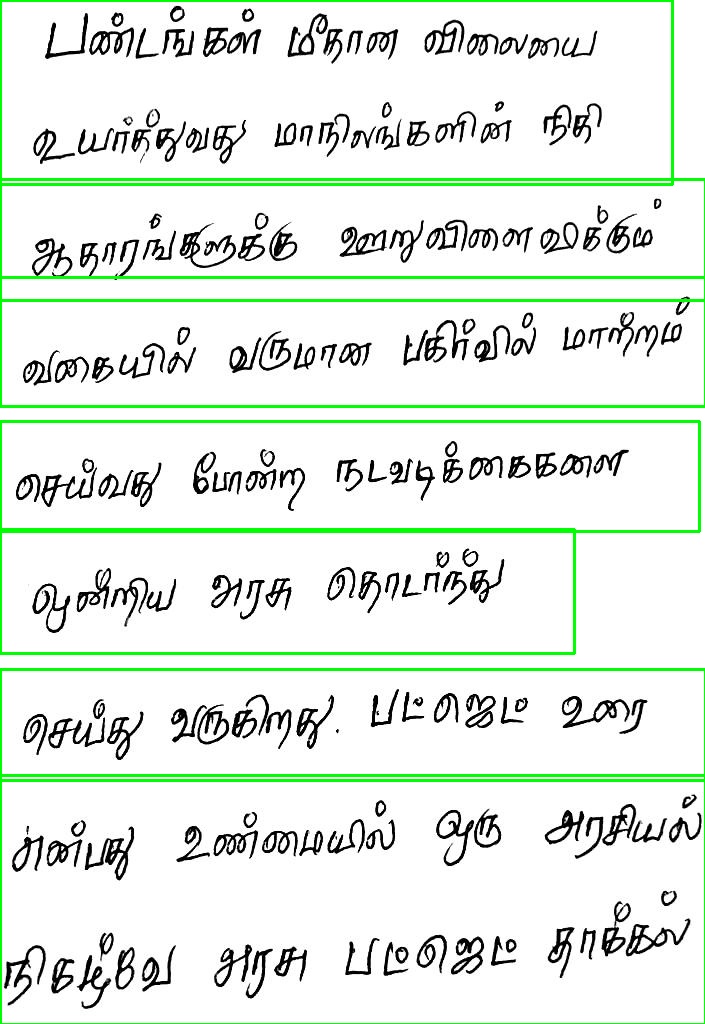 பண்டங்கள் மீதான விலையை
உயர்த்துவது மாநிலங்களின் நிதி
ஆதாரங்களுக்கு ஊறுவிளைவிக்கும்
வகையில் வருமான பகிர்வில் மாற்றம்
செய்வது போன்ற நடவடிக்கைகளை
ஒன்றிய அரசு தொடர்ந்து
செய்து வருகிறது. பட்ஜெட் உரை
என்பது உண்மையில் ஒரு அரசியல்
நிகழ்வே அரசு பட்ஜெட் தாக்கல்